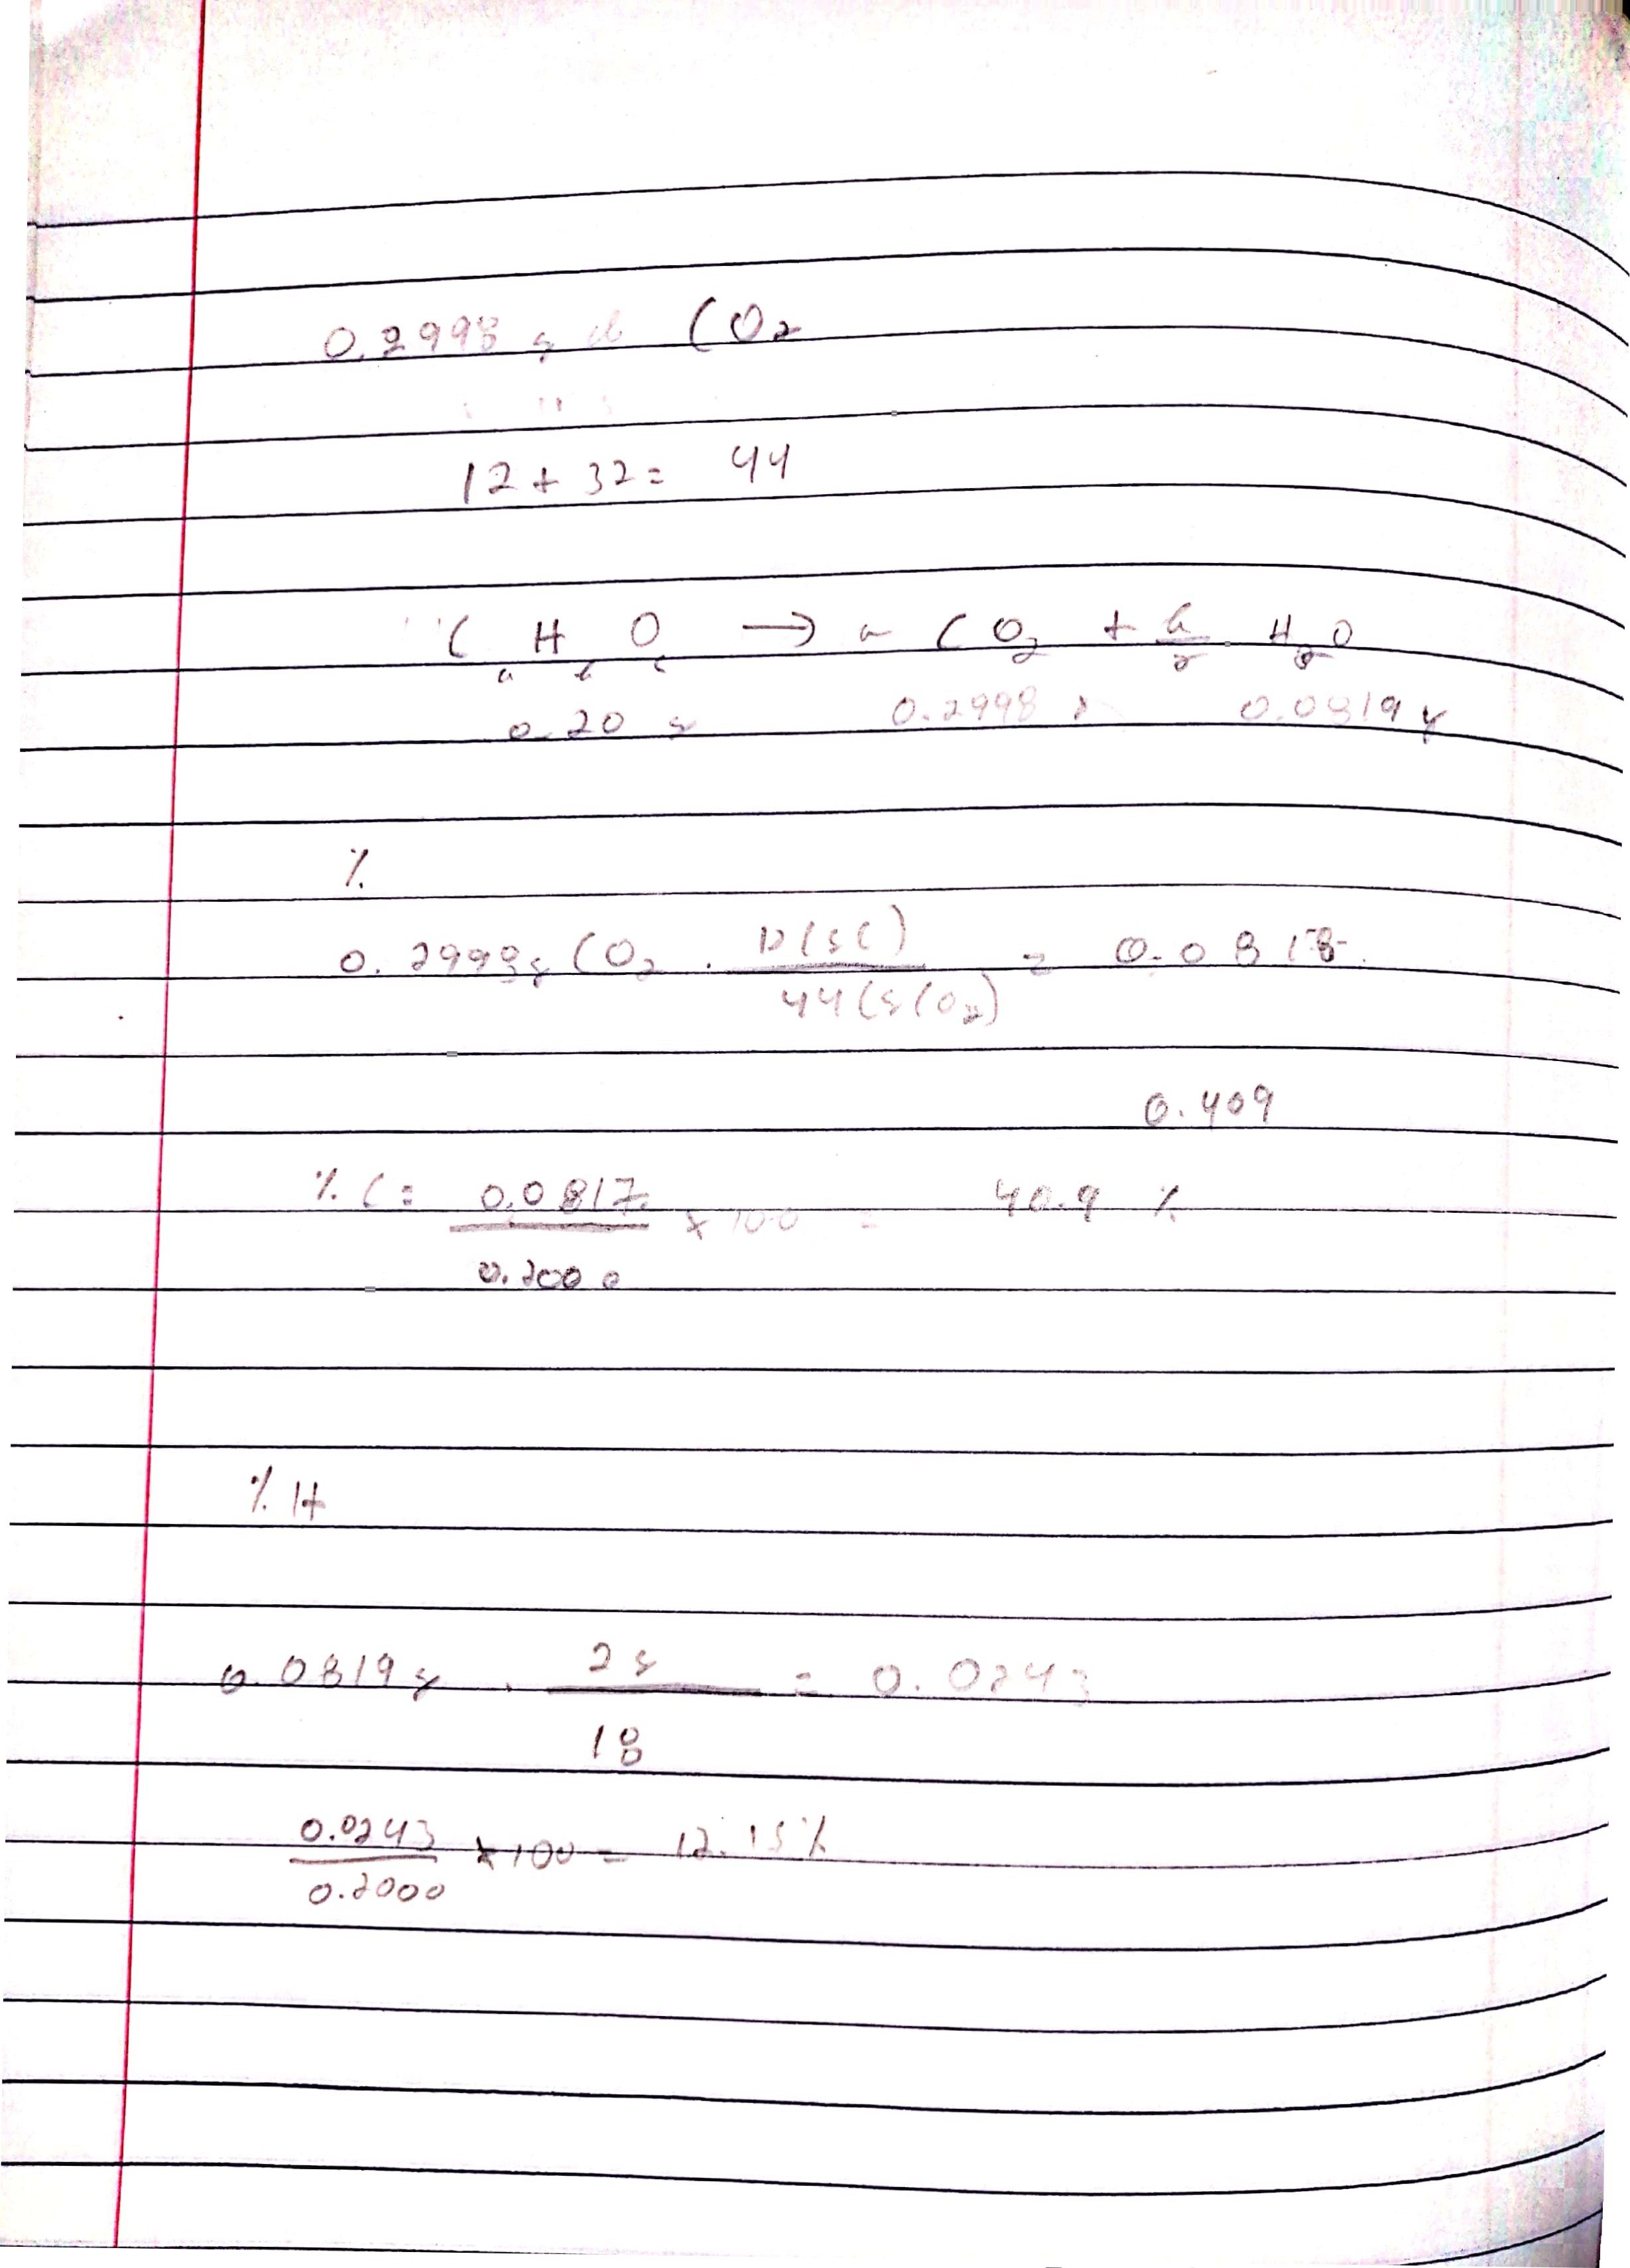 0.2998 g de CO2
12 + 32 = 44
CaHbOc → a CO2 + b/2 · H2O
0.20 g 0.2998 g 0.0819 g
%
0.2998g CO2 · 12(gC) / 44(gCO2) = 0.0818
0.409
% C = 0.0817 / 0.2000 × 100 = 40.9 %
% H
0.0819g · 2g / 18 = 0.0243
0.0243 / 0.2000 × 100 = 12.15%